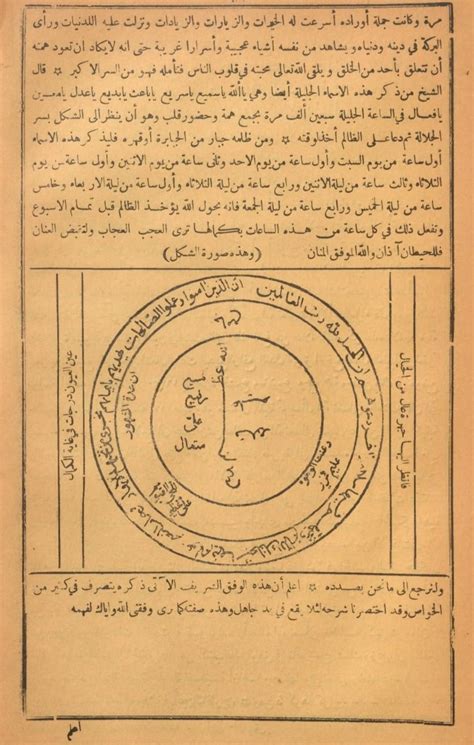 مرة وكانت جملة أوراده أسرعت له الخيرات والزيارات والزيادات ونزلت عليه اللدنيات ورأى
البركة في دينه ودنياه ويشاهد من نفسه أشياء عجيبة وأسرارا غريبة حتى انه لايكاد ان تعود همته
أن تتعلق بأحد من الخلق ويلقى الله تعالى محبته في قلوب الناس فتأمله فهو من السر الاكبر * قال
الشيخ من ذكر هذه الاسماء الجليلة أيضا وهي ياألله ياسميع ياسريع ياباعث يابديع ياعدل يامعين
يافعال في الساعة الجليلة سبعين ألف مرة بجمع همة وحضور قلب وهو أن ينظر الى الشكل بسر
الجلالة ثم دعا على الظالم أخذ لوقته * ومن ظلمه جبار من الجبابرة أوقهره فليذكر هذه الاسماء
أول ساعة من يوم السبت وأول ساعة من يوم الاحد وثانى ساعة من يوم الاثنين وأول ساعة من يوم
الثلاثاء وثالث ساعة من ليلة الاثنين ورابع ساعة من ليلة الثلاثاء وأول ساعة من ليلة الاربعاء وخامس
ساعة من ليلة الخميس ورابع ساعة من ليلة الجمعة فانه بحول الله يؤخذ الظالم قبل تمام الاسبوع
وتفعل ذلك في كل ساعة من هذه الساعات بكمالها ترى العجب العجاب ولتقبض العنان
فللحيطان آذان والله الموفق المنان (وهذه صورة الشكل)
فانظر اليها حيرة عال من الجبال
عين العيون درجات في غاية الكمال
الحمد لله رب العالمين
ان الذين آمنوا وعملوا الصالحات يهديهم ربهم بايمانهم تجري من تحتهم
ان عدة الشهور
وعنت الوجوه
متعال
ولنرجع الى ما نحن بصدده * اعلم أن هذه الوفق الشريف الآتى ذكره يتصرف في كثير من
الخواص وقد اختصرنا شرحه لئلا يقع في يد جاهل وهذه صفته كما ترى وفقنى الله واياك لفهمه
اعلم